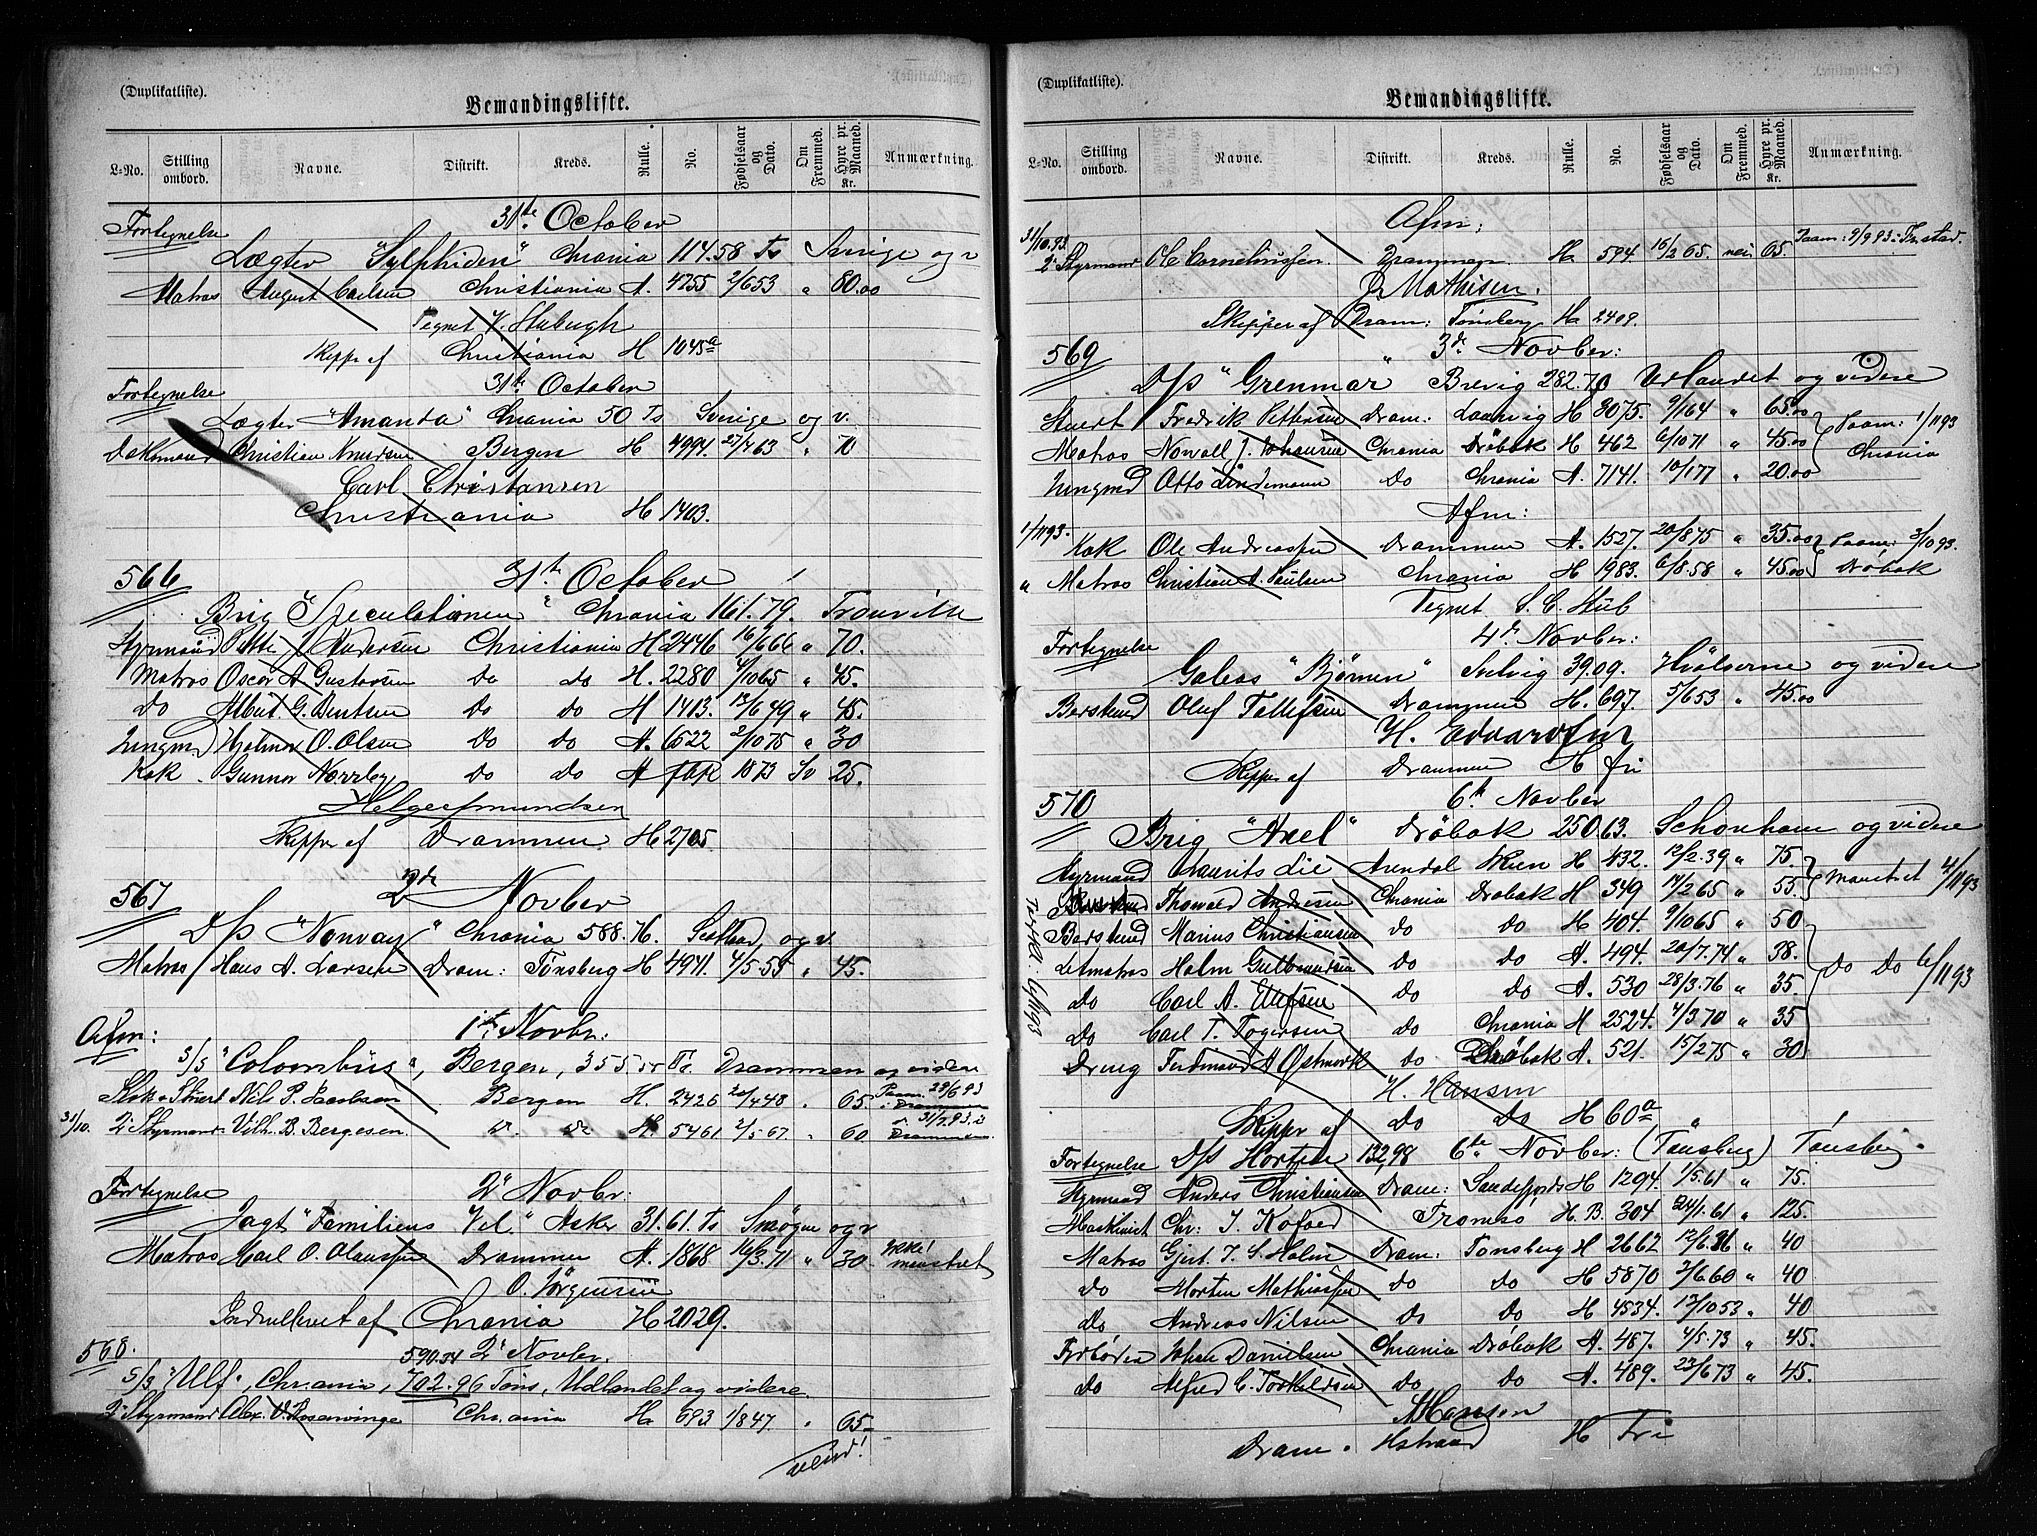 (Duplikatliste).
Bemandingsliste.
L-No. Stilling ombord. Navne. Distrikt. Kreds. Rulle. No. Fødselsaar og Dato. Om Fremmed. Hyre pr. Maaned. Kr. Anmærkning.
31te October
Fortegnelse
Lægter "Sylphiden" Chrania 114.58 Ts Sverige og v
Matros August Carlsen Christiania A. 4755 2/6 53 " 80.00
Tegnet V. Stubugh
Skippr af Christiania H 1045a
31te October
Fortegnelse
Lægter "Amanda" Chrania 50 Ts Sverige og v.
Dækmand Christian Knudsen Bergen H 4994. 27/7 63 " 70
Carl Christansen
Christiania H 1403.
566 31te October
Brig "Speculationen" Chrania 161.79.
Styrmand Petter J. Andersen Christiania H 2446 16/6 66 " 70.
Matros Oscar A. Gustavsen do do H. 2280 4/10 65 " 45.
do Albert G. Bentsen do do H 1413. 13/6 49 " 45.
Jungmd Hjalmar O. Olsen do do A. 6522 2/10 75 " 30
Kok Gunnar Norrby do do A 1873 Sv 25.
Helge Amundsen
Skippr af Drammen H 2705
567 2de Novber
D/s "Norvay" Chrania 588.76. Scotland, og v.
Matros Hans A. Larsen Dram: Tønsberg H 4971. 4/5 55 " 45.
Afm: 1ste Novbr:
S/S "Colombus", Bergen, 355.55 Ts. Drammen og videre
Stuert Nils P. Jacobsen Bergen H. 2426 20/4 48 " 65 Paam. 28/6 93 i Drammen
31/10. 2. Styrmand Vilh. B. Bergesen do do H. 5461 2/5 67. " 60 31/7 93 i Drammen
Fortegnelse 2de Novbr:
Jagt "Familiens Vel" Asker 31.61. Ts Smögen og v
Matros Carl O. Olaussen Drammen A. 1868 16/3 71 " 30 Ikke! mønstret
O. Jörgensen
Indrulleret af Chrania H 2029.
568. 590.54 2de Novbr.
S/S "Ulf", Chrania, 702.96 Tons, Udlandet og videre.
2. Styrmand Alex. V. Rosenvinge Chrania H 693 1/8 47. " 65
vend!
(Duplikatliste).
Bemandingsliste.
L-No. Stilling ombord. Navne. Distrikt. Kreds. Rulle. No. Fødselsaar og Dato. Om Fremmed. Hyre pr. Maaned. Kr. Anmærkning.
Afm:
31/10.93. 2. Styrmand Ole Corneliussen Drammen H 594. 16/2 65. nei 65. Paam: 9/9 93. Fr.stad.
J. Mathisen.
Skipper af Dram: Tønsberg H 2409.
569 3de Novber:
D/s "Grenmar" Brevig 282.70 Udlandet og videre
Stuert Fredrik Pettersen Dram: Laurvig H 3075. 9/1 64 " 65.00 Paam: 1/11 93
Matros Norvall J. Johansen Chrania Drøbak H 462 6/10 71 " 45.00 Chrania
Jungmd Otto Lindemann Do Chrania A. 7141. 10/1 77 " 20.00
Afm:
1/11 93. Kok Ole Andreassen Drammen A. 1527. 20/8 75 " 35.00 Paam: 3/10 93.
" Matros Christian A. Paulsen Chrania H 1983. 6/8.58 " 45.00 Drøbak
Tegnet S. C. Stub
4de Novber:
Fortegnelse
Galeas "Bjørnen" Svelvig 39.09. Hvaløerne og videre
Bestmd Oluf Tollefsen Drammen H. 697. 5/6 53 " 45.00
H. Edvardsen
Skippr af Drammen H fri
570 6te Novber
Brig "Axel" Drøbak 250.63. og videre
Styrmand Laurits Lie Arendal Skien H 432. 12/2.39 " 75 mønstret 4/11 93
Thorvald Andresen Chrania Drøbak H 349 14/2 65 " 55.
Bestmd Marius Christiansen do do H 404. 9/10 65 " 50
Letmatros Holm Gulbrandsen do do A. 494. 20/7.74 " 38. do do 6/11 93
do Carl A. Ellefsen do do A. 530 28/3.76 " 35
do Carl T. Torgersen do Chrania H 2524. 4/3.70 " 35
Dreng Ferdinand A Østmork do Drøbak A. 521. 15/2 75 " 30
H. Hansen
Skippr af do do H 60a
Fortegnelse D/s Horten 132.98 6te Novber: (Tønsberg) Tønsberg.
Styrmand Anders Christiansen Dram: Sandefjords H 1294. 1/5.61 " 75.
Maskinist Chr: J. Kofoed Tromsø H. B. 304 24/1.61 " 125.
Matros Gjert. T. S. Holm Dram: Tønsberg H 2662 12/6.36 " 40
do Morten Mathiassen do do H 5870 2/6.60 " 40
do Andreas Nilsen do do H 4534. 13/10 53 " 40
Fyrbøder Johan Danielsen Chrania Drøbak A. 487. 4/5.73 " 45.
do Alfred C. Torkildsen do do A. 489. 23/6 73 " 45.
A Hansen
Dram. H Fri